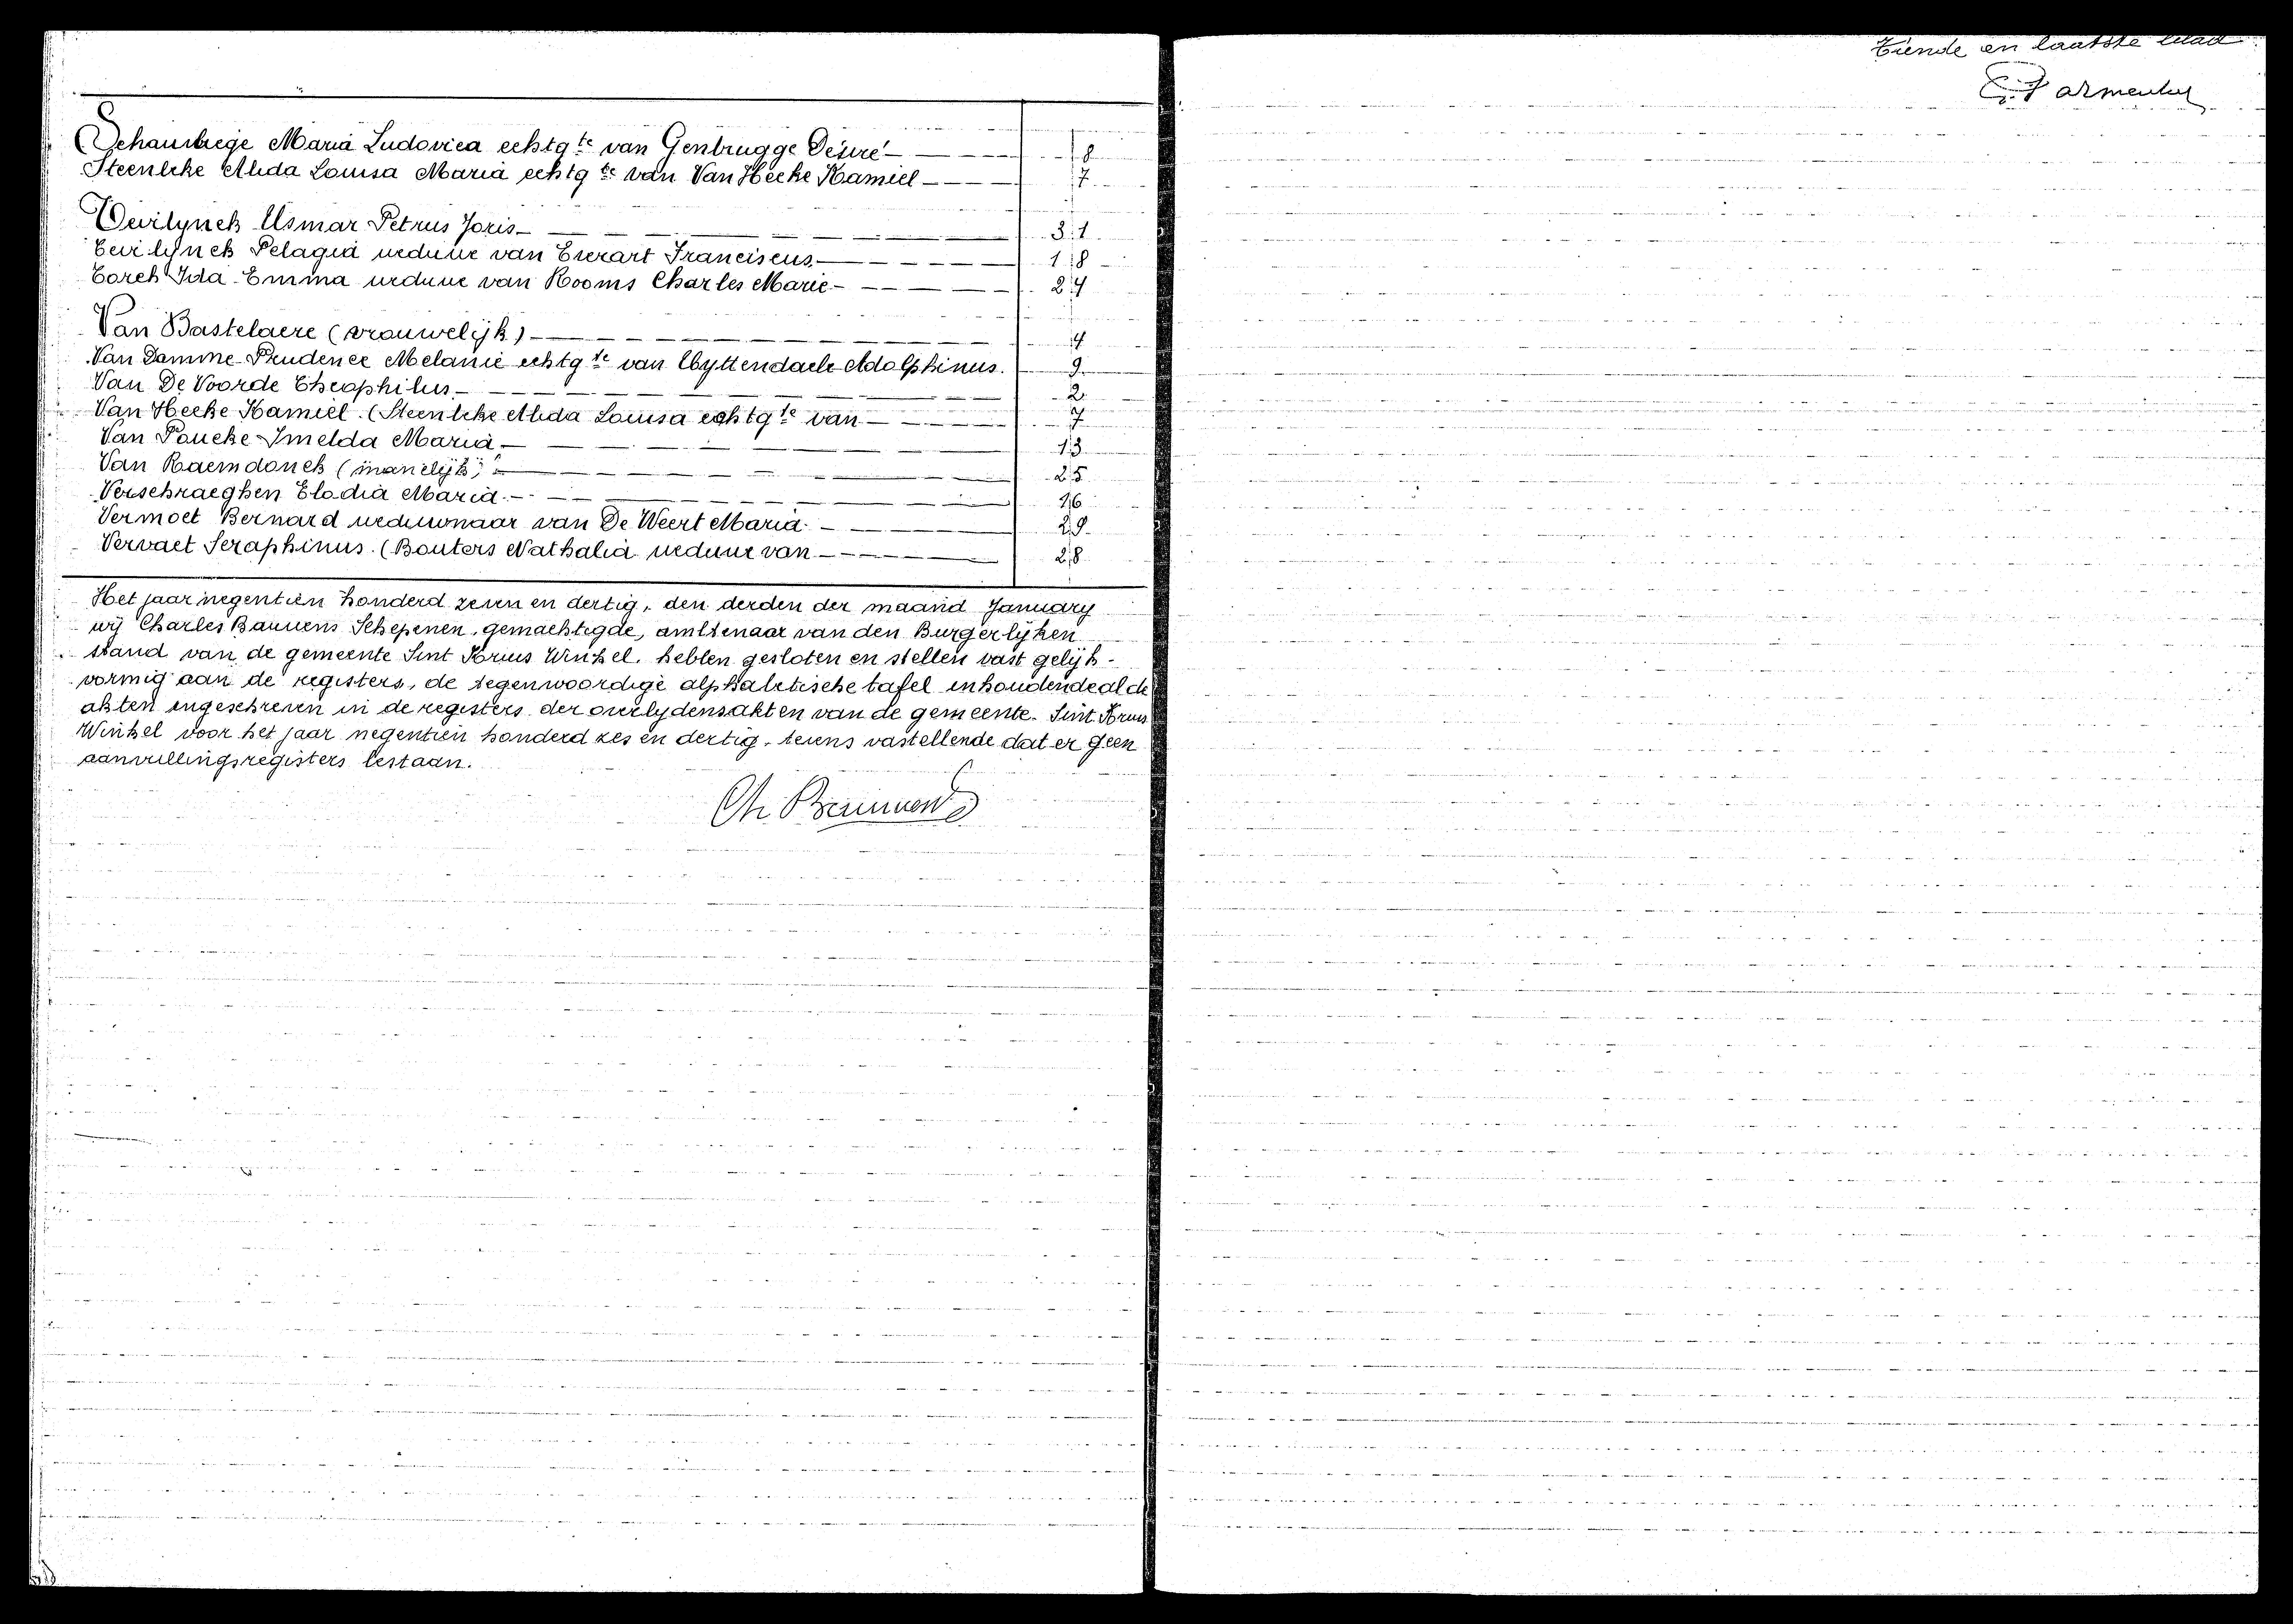 Schaubrege Maria Ludovica echtgte van Genbrugge Desiré 8
Steenbeke Alida Louisa Maria echtgte van Van Hecke Kamiel 7
Tevilynck Usmar Petrus Joris 31
Tevilynck Pelagia weduwe van Everart Franciscus 18
Torck Ida Emma weduwe van Rooms Charles Marie 24
Van Bastelaere (vrouwelijk) 4
Van Damme Prudence Melanie echtgte van Uyttendaele Adolphinus. 9
Van De Voorde Theophilus 2
Van Hecke Kamiel. (Steenbeke Alida Louisa echtgte van 7
Van Poucke Imelda Maria 13
Van Raemdonck (manelijk) 25
Verschraeghen Elodia Maria 16
Vermoet Bernard weduwnaar van De Weert Maria 29
Vervaet Seraphinus. (Bouters Nathalia weduwe van 28
Het jaar negentien honderd zeven en dertig, den derden der maand January
wij Charles Bauwens Schepenen, gemachtigde, ambtenaar van den Burgerlijken
stand van de gemeente Sint Kruis Winkel, hebben gesloten en stellen vast gelijk-
vormig aan de registers, de tegenwoordige alphabetische tafel inhoudende al de
akten ingeschreven in de registers der overlydensakten van de gemeente Sint Kruis
Winkel voor het jaar negentien honderd zes en dertig, tevens vastellende dat er geen
aanvullingsregisters bestaan.
Ch. Bauwens
Tiende en laatste blad